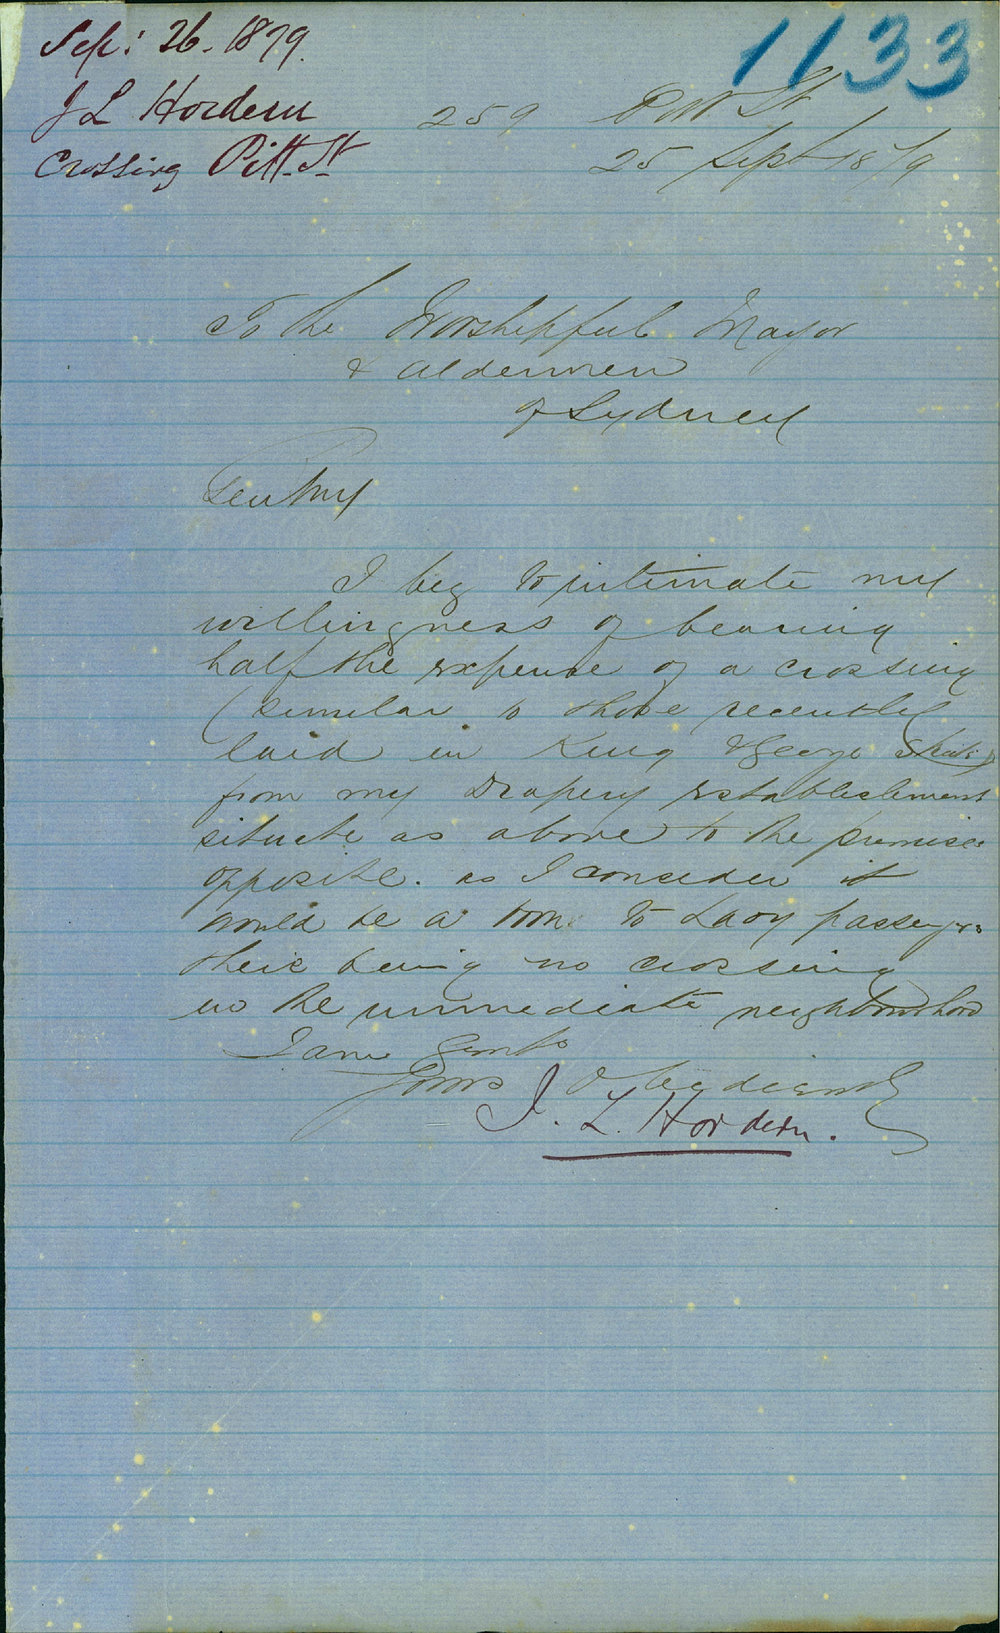 Sep: 26. 1879.
J L Hordern
Crossing Pitt St
1133
259 Pitt St
25 Sept 1879
To the Worshipful Mayor
& Aldermen
of Sydney
Gentm
I beg to intimate my
willingness of bearing
half the expense of a crossing
(similar to those recently
laid in King & George Streets)
from my Drapery establishment
situate as above to the premises
opposite. as I consider it
would be a boon to Lady passengrs
there being no crossing
in the immediate neighbourhood
I am Gents
Yours Obediently
J. L. Hordern.